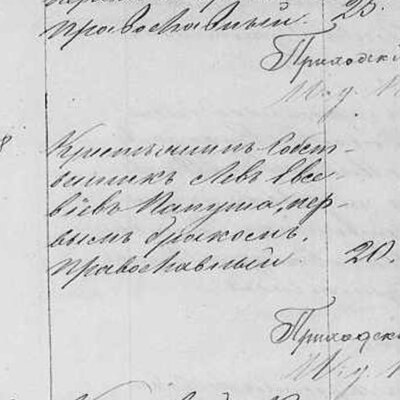 православный. 25.
Приходскі
8
Крестьянинъ Собст-
венникъ Левъ Евсе-
віевъ Папуша, пер-
вымъ бракомъ.
православный 20.
Приходскі